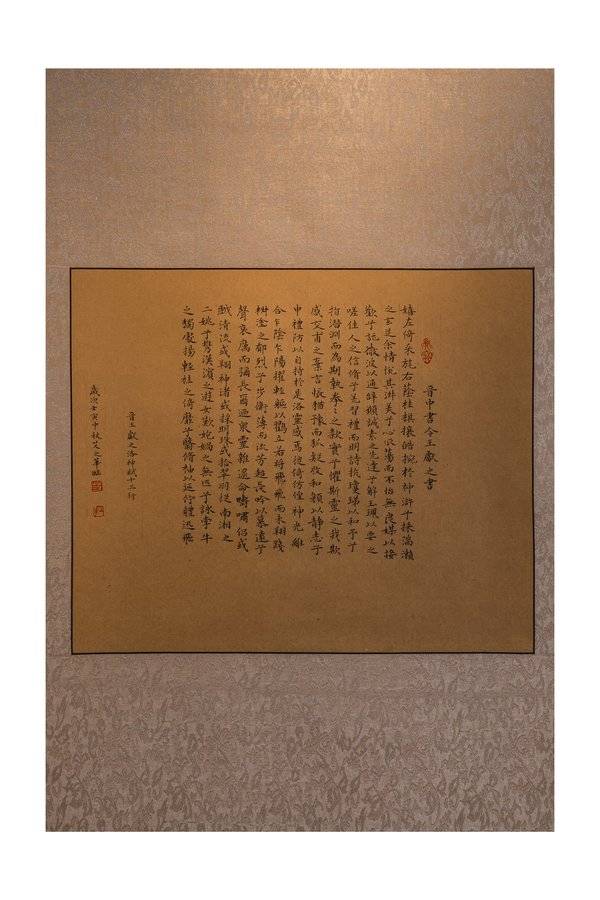 晋中書令王獻之書
嬉左倚采旄右蔭桂旗攘皓捥於神滸兮採湍瀨
之玄芝余情悅其淑美兮心振蕩而不怡無良媒以接
歡兮託微波以通辭願誠素之先達兮解玉珮以要之
嗟佳人之信脩兮羌習禮而明詩抗瓊珶以和予兮
指潛淵而為期執拳〻之款實兮懼斯靈之我欺
感交甫之棄言悵猶豫而狐疑收和顏以静志兮
申禮防以自持於是洛靈感焉徙倚仿偟神光離
合乍陰乍陽擢輕軀以鶴立若將飛而未翔踐
椒塗之郁烈兮步衡薄而流芳超長吟以慕遠兮
聲哀厲而彌長爾迺衆靈雜遝命疇嘯侶或
戲清流或翔神渚或採明珠或拾翠羽從南湘之
二姚兮攜漢濱之遊女歎匏媧之無匹兮詠牽牛
之獨處揚輕袿之倚靡兮翳脩袖以延佇體迅飛
晋王獻之洛神賦十三行
歲次壬寅中秋艾之筆臨